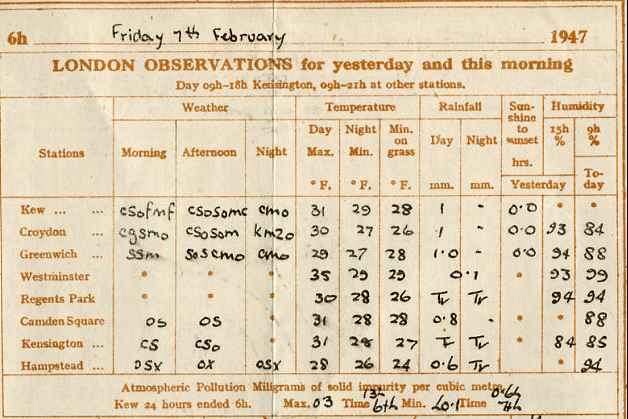 6h Friday 7th February 1947
LONDON OBSERVATIONS for yesterday and this morning
Day 09h-18h Kensington, 09h-21h at other stations.
Weather Temperature Rainfall Sunshine to sunset Humidity
Stations Morning Afternoon Night Day Max. Night Min. Min. on grass Day Night hrs. 15h % 9h %
°F. °F. °F. mm. mm. Yesterday To-day
Kew ... ... csofmf csosomc cmo 31 29 28 1 - 0.0 * *
Croydon ... cgsmo csosom km20 30 27 26 1 - 0.0 93 84
Greenwich ... ssm soscmo cmo 29 27 28 1.0 - 0.0 94 88
Westminster * * * 35 29 29 0.1 * 93 99
Regents Park * * * 30 28 26 Tr Tr * 94 94
Camden Square os os * 31 28 28 0.8 - * * 88
Kensington ... cs cso * 31 28 27 Tr Tr * 84 85
Hampstead ... osx ox osx 28 26 24 0.6 Tr * * 94
Atmospheric Pollution Milligrams of solid impurity per cubic metre
Kew 24 hours ended 6h. Max. 03 Time 13h 6th Min. Time 0.6h 7th